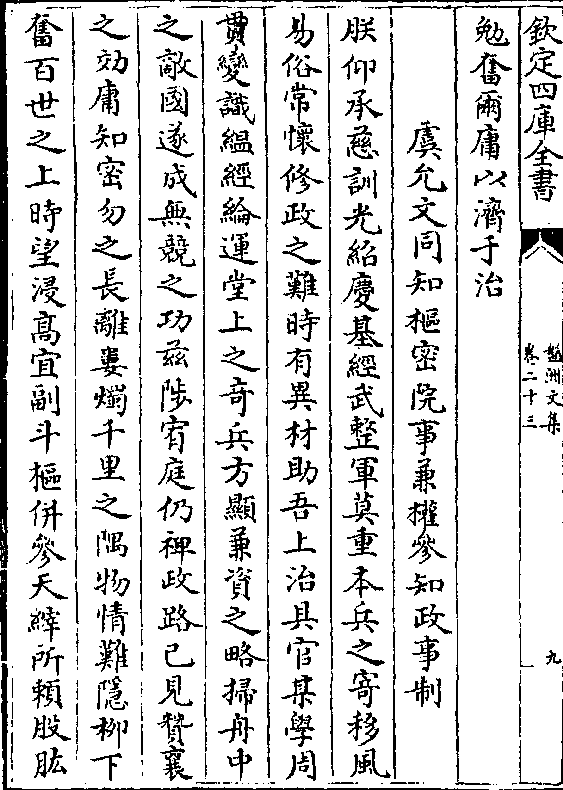 欽定四庫全書
盤洲文集
卷二十三
九
勉奮爾庸以濟于治
虞允文同知樞密院事兼權參知政事制
朕仰承慈訓光紹慶基經武整軍莫重本兵之寄移風
易俗常懷修政之難時有異材助吾上治具官某學周
貫變識縕經綸運堂上之奇兵方顯兼資之略掃舟中
之敵國遂成無競之功茲陟宥庭仍裨政路已見贊襄
之效庸知密勿之長離婁燭千里之隅物情難隱栁下
奮百世之上時望浸髙宜副斗樞併參天緯所頼股肱